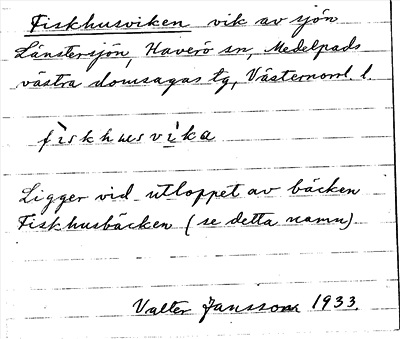 Fiskhusviken vik av sjön
Länstersjön, Haverö sn, Medelpads
västra domsagas tg, Västernorrl. l.
fìskhusvìka
Ligger vid utloppet av bäcken
Fiskhusbäcken (se detta namn).
Valter Jansson 1933.